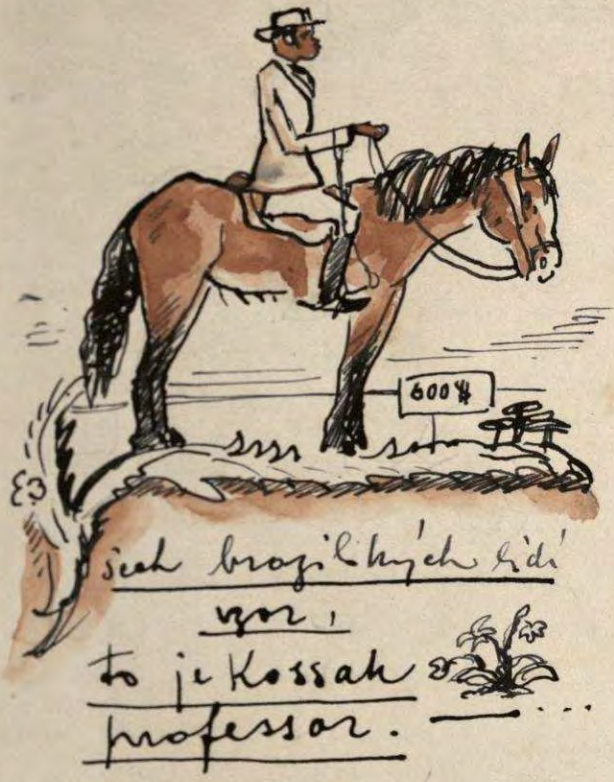 600 $
brazilských lidí
vzor,
to je Kossak
professor.